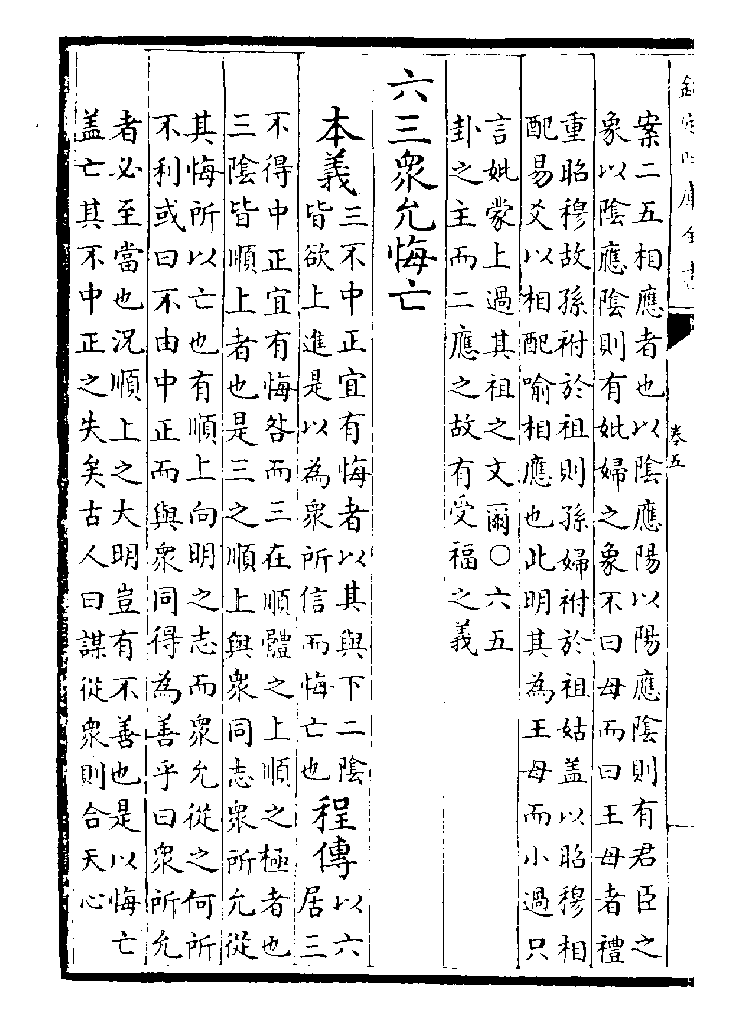 欽定四庫全書 卷五
案二五相應者也以陰應陽以陽應陰則有君臣之
象以陰應陰則有妣婦之象不曰母而曰王母者禮
重昭穆故孫祔於祖則孫婦祔於祖姑盖以昭穆相
配易爻以相配喻相應也此明其為王母而小過只
言妣蒙上過其祖之文爾○六五
卦之主而二應之故有受福之義
六三衆允悔亡
本義三不中正宜有悔者以其與下二陰
皆欲上進是以為衆所信而悔亡也程傳以六
居三
不得中正宜有悔咎而三在順體之上順之極者也
三陰皆順上者也是三之順上與衆同志衆所允從
其悔所以亡也有順上向明之志而衆允從之何所
不利或曰不由中正而與衆同得為善乎曰衆所允
者必至當也況順上之大明豈有不善也是以悔亡
盖亡其不中正之失矣古人曰謀從衆則合天心